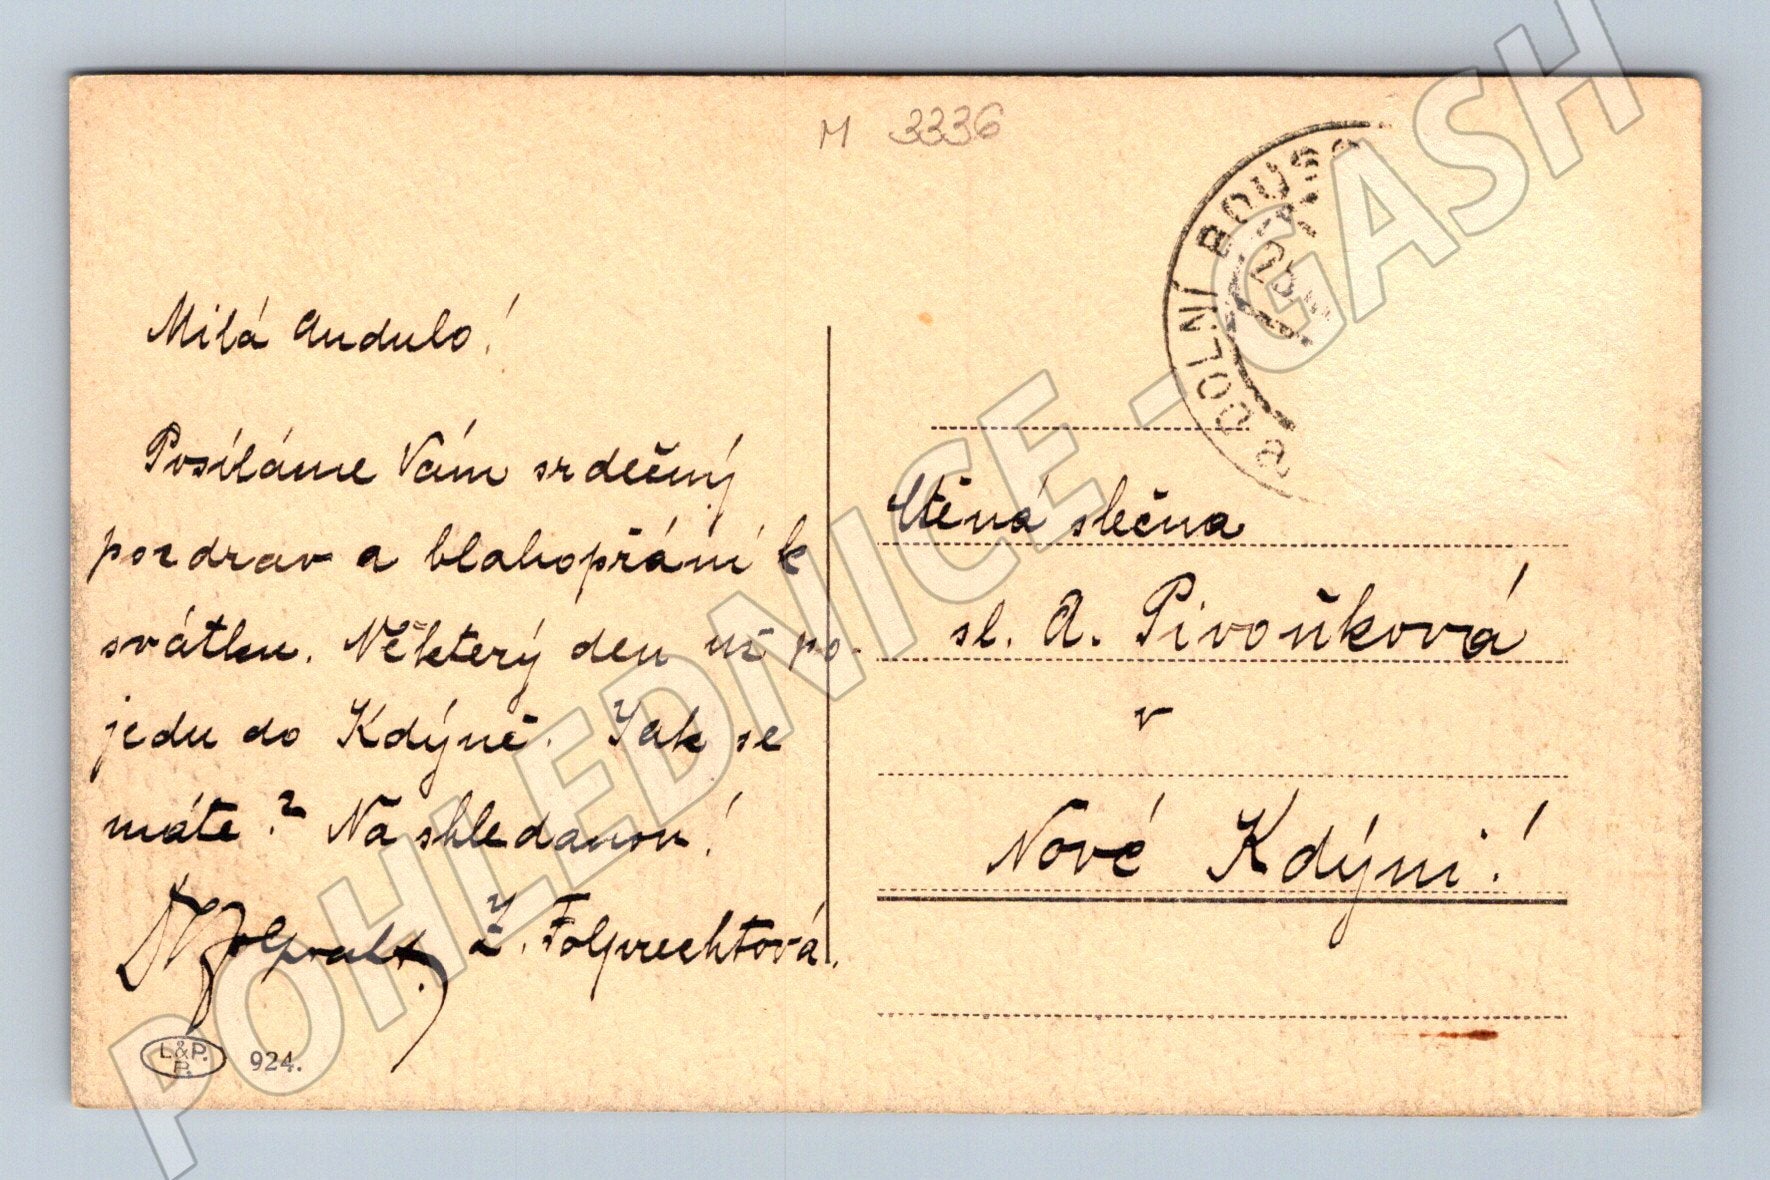 M 3336
DOLNÍ BOUS
Milá Andulo!
Posíláme Vám srdečný
pozdrav a blahopřání k
svátku. Některý den už po-
jedu do Kdýně. Jak se
máte? Na shledanou!
Z. Folprechtová.
L&P.
P.
924.
Ctěná slečna
sl. A. Pivoňková
v
Nové Kdýni!
POHLEDNICE - GASH